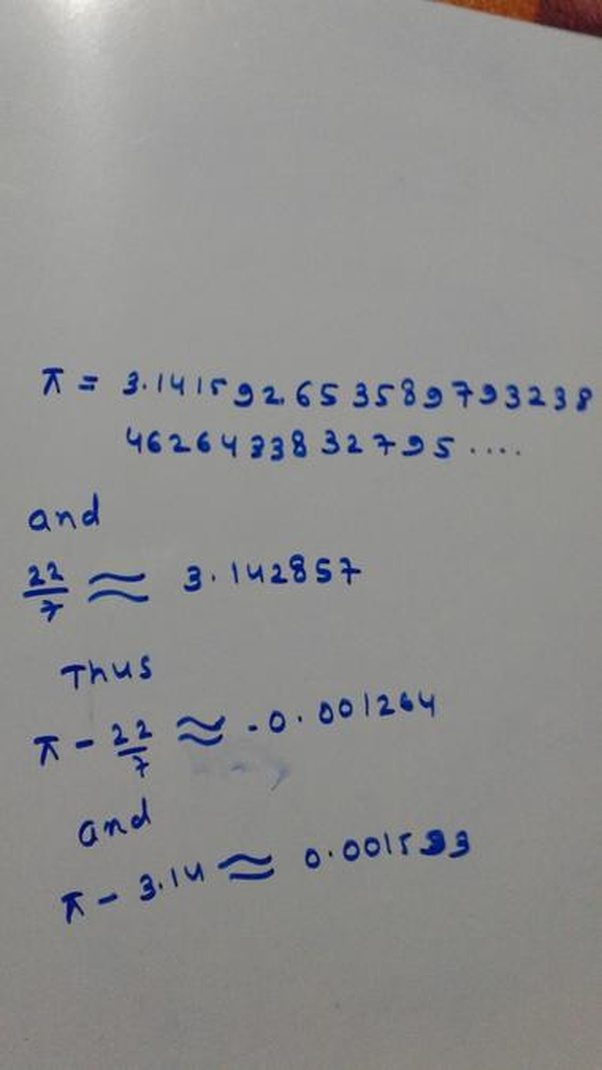 π = 3.141592653589793238
4626433832795....
and
22/7 ≈ 3.142857
Thus
π - 22/7 ≈ -0.001264
and
π - 3.14 ≈ 0.001593